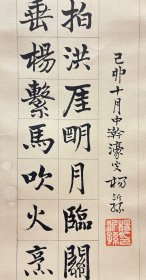 拍洪厓明月臨關
垂楊繫馬吹火烹
己卯十月中幹濠叟楊沂孫